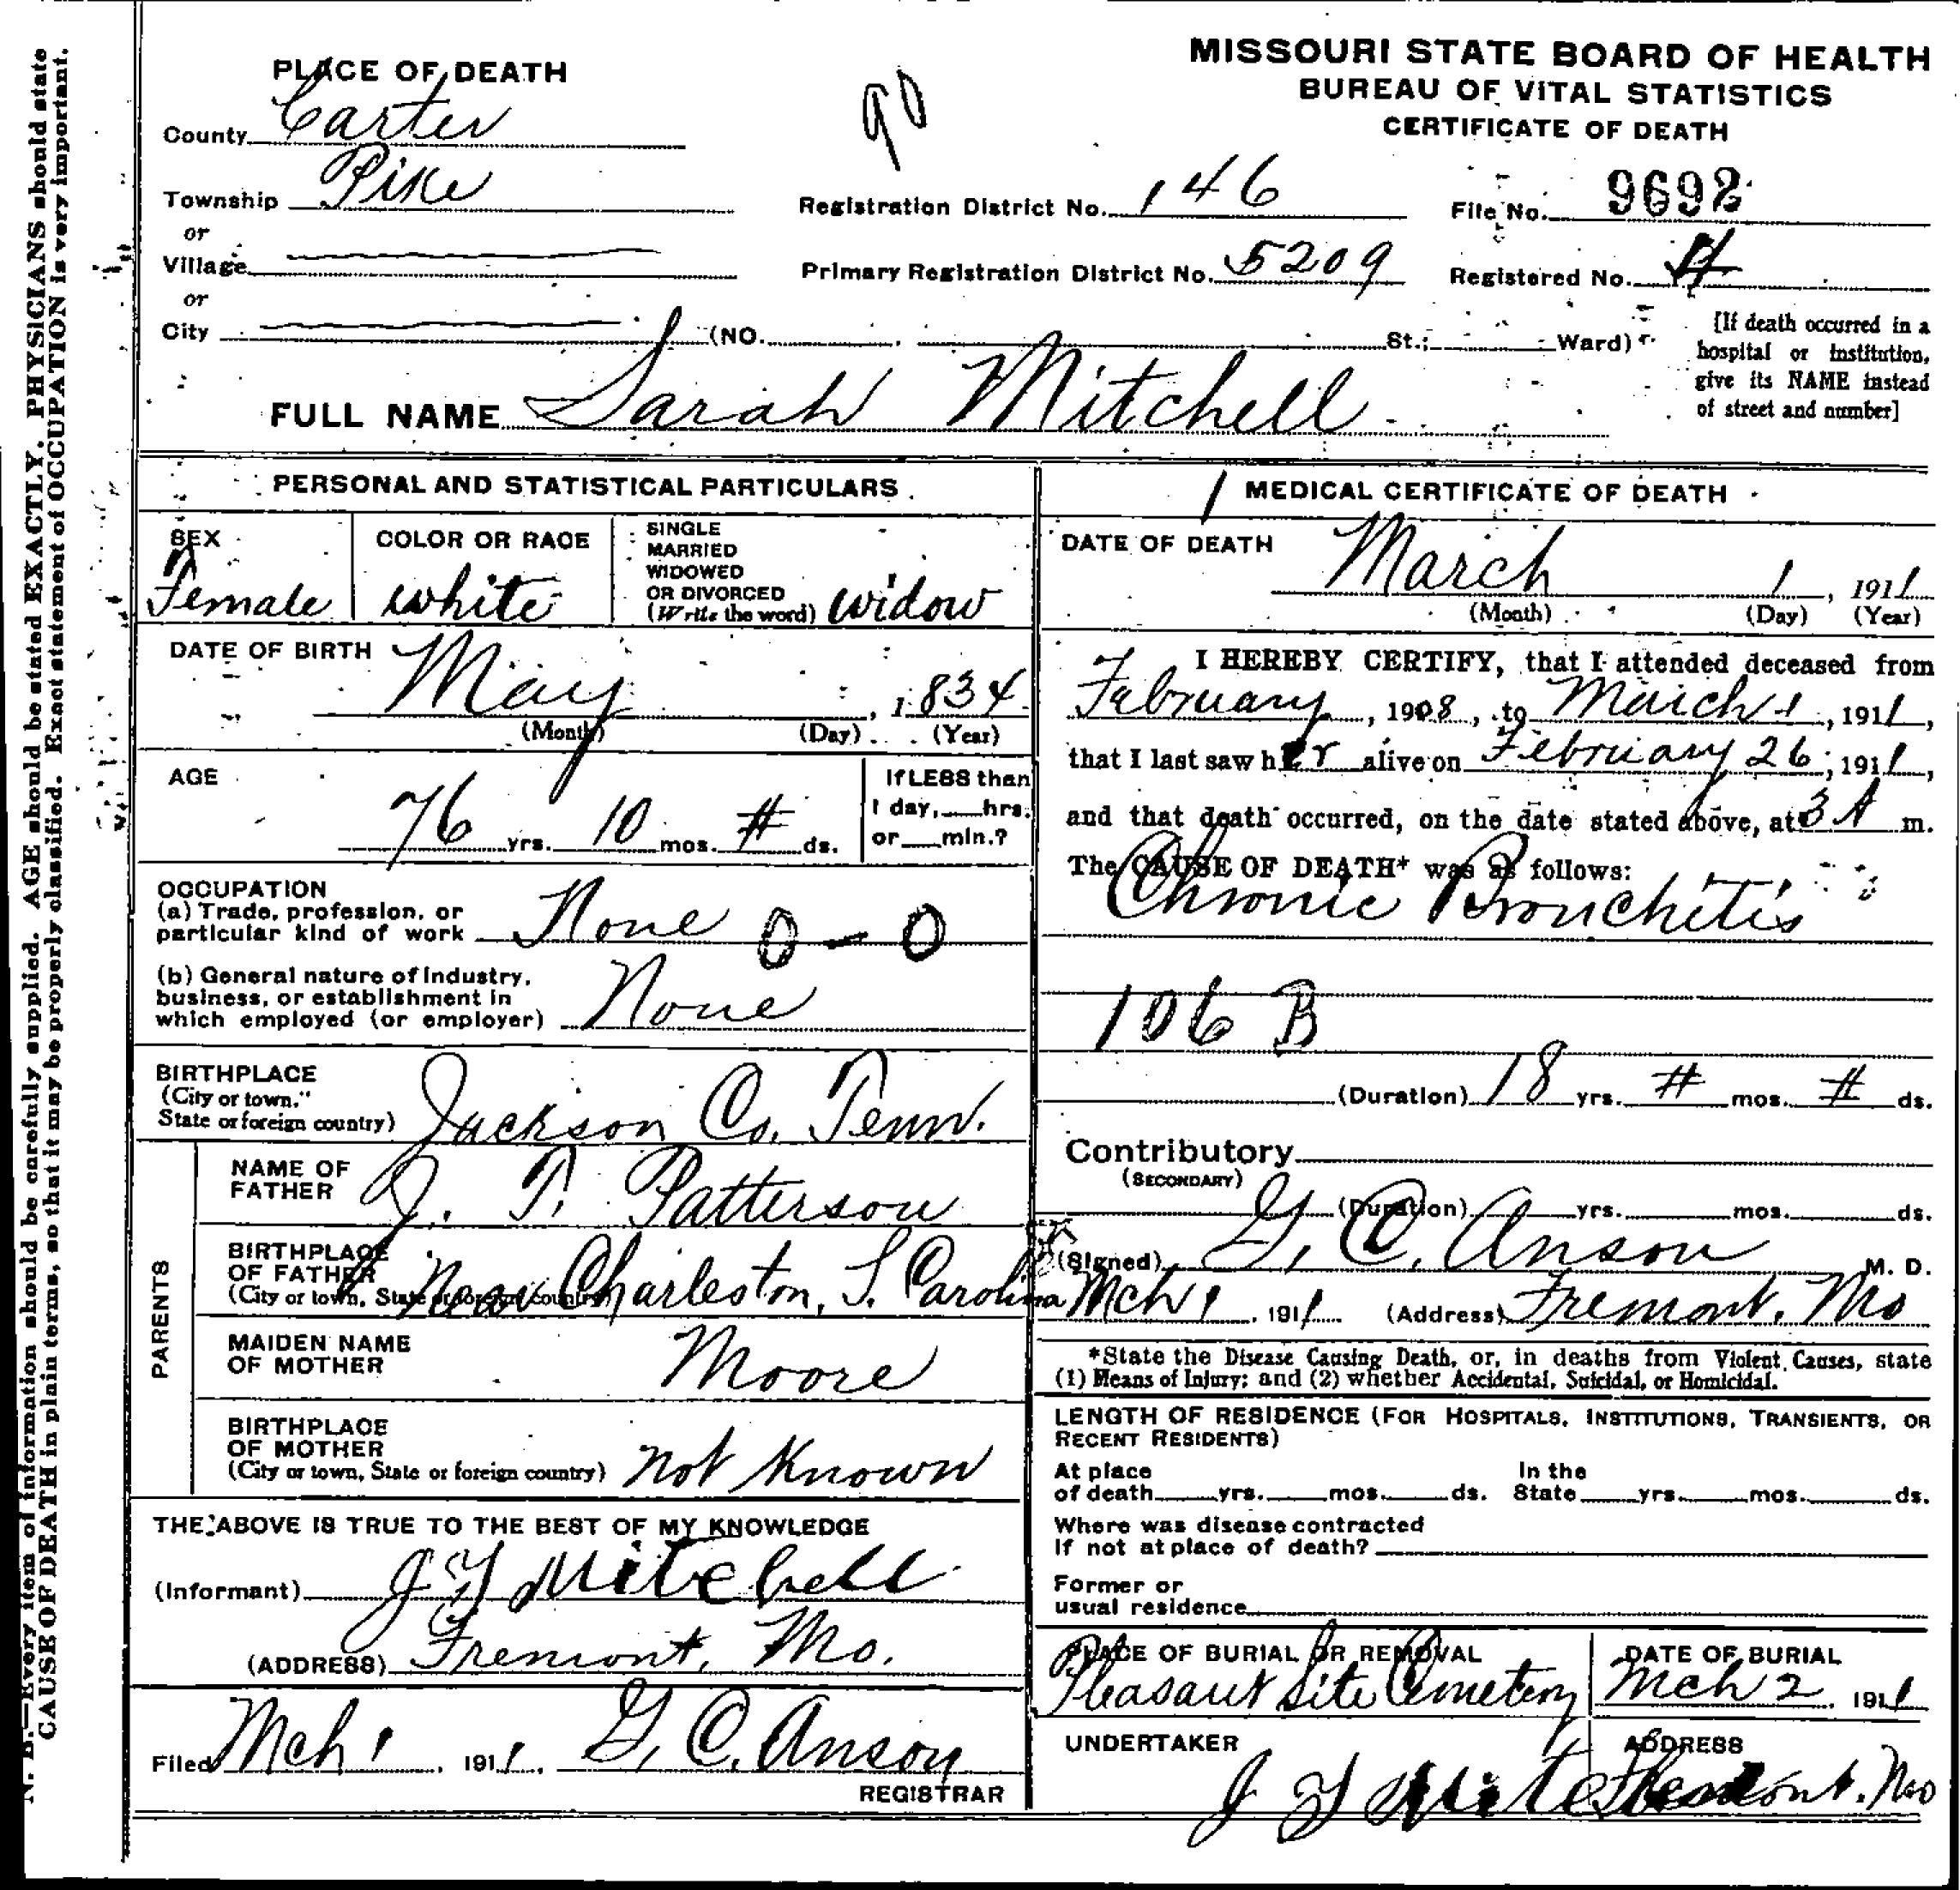 MISSOURI STATE BOARD OF HEALTH
BUREAU OF VITAL STATISTICS
CERTIFICATE OF DEATH
PLACE OF DEATH
90
County Carter
Township Pike
or
Village
or
City (NO. St.; Ward)
Registration District No. 146
File No. 9692
Primary Registration District No. 5209
Registered No. 4
[If death occurred in a
hospital or institution,
give its NAME instead
of street and number]
FULL NAME Sarah Mitchell
PERSONAL AND STATISTICAL PARTICULARS
SEX
Female
COLOR OR RACE
white
SINGLE
MARRIED
WIDOWED
OR DIVORCED
(Write the word) widow
DATE OF BIRTH
May , 1834
(Month) (Day) (Year)
AGE
76 yrs. 10 mos. # ds.
If LESS than
1 day, hrs.
or min.?
OCCUPATION
(a) Trade, profession, or
particular kind of work None 0 - 0
(b) General nature of industry,
business, or establishment in
which employed (or employer) None
BIRTHPLACE
(City or town,
State or foreign country) Jackson Co. Tenn.
PARENTS
NAME OF
FATHER J. T. Patterson
BIRTHPLACE
OF FATHER
(City or town, State or foreign country) Near Charleston, S. Carolina
MAIDEN NAME
OF MOTHER Moore
BIRTHPLACE
OF MOTHER
(City or town, State or foreign country) not Known
THE ABOVE IS TRUE TO THE BEST OF MY KNOWLEDGE
(Informant) J Y Mitchell
(ADDRESS) Fremont, Mo.
Filed Mch 1, 1911, G. C. Anson
REGISTRAR
1 MEDICAL CERTIFICATE OF DEATH
DATE OF DEATH
March 1, 1911
(Month) (Day) (Year)
I HEREBY CERTIFY, that I attended deceased from
February, 1908, to March 1, 1911,
that I last saw her alive on February 26, 1911,
and that death occurred, on the date stated above, at 3 A m.
The CAUSE OF DEATH* was as follows:
Chronic Bronchitis
106 B
(Duration) 18 yrs. # mos. # ds.
Contributory
(SECONDARY)
(Duration) yrs. mos. ds.
(Signed) G. C. Anson M. D.
Mch 1, 1911 (Address) Fremont, Mo
*State the Disease Causing Death, or, in deaths from Violent Causes, state
(1) Means of Injury; and (2) whether Accidental, Suicidal, or Homicidal.
LENGTH OF RESIDENCE (FOR HOSPITALS, INSTITUTIONS, TRANSIENTS, OR
RECENT RESIDENTS)
At place
of death yrs. mos. ds.
In the
State yrs. mos. ds.
Where was disease contracted
If not at place of death?
Former or
usual residence
PLACE OF BURIAL OR REMOVAL
Pleasant Site Cemetery
DATE OF BURIAL
Mch 2, 1911
UNDERTAKER
J Y
ADDRESS
Fremont, Mo
N. B.—Every item of information should be carefully supplied. AGE should be stated EXACTLY. PHYSICIANS should state
CAUSE OF DEATH in plain terms, so that it may be properly classified. Exact statement of OCCUPATION is very important.